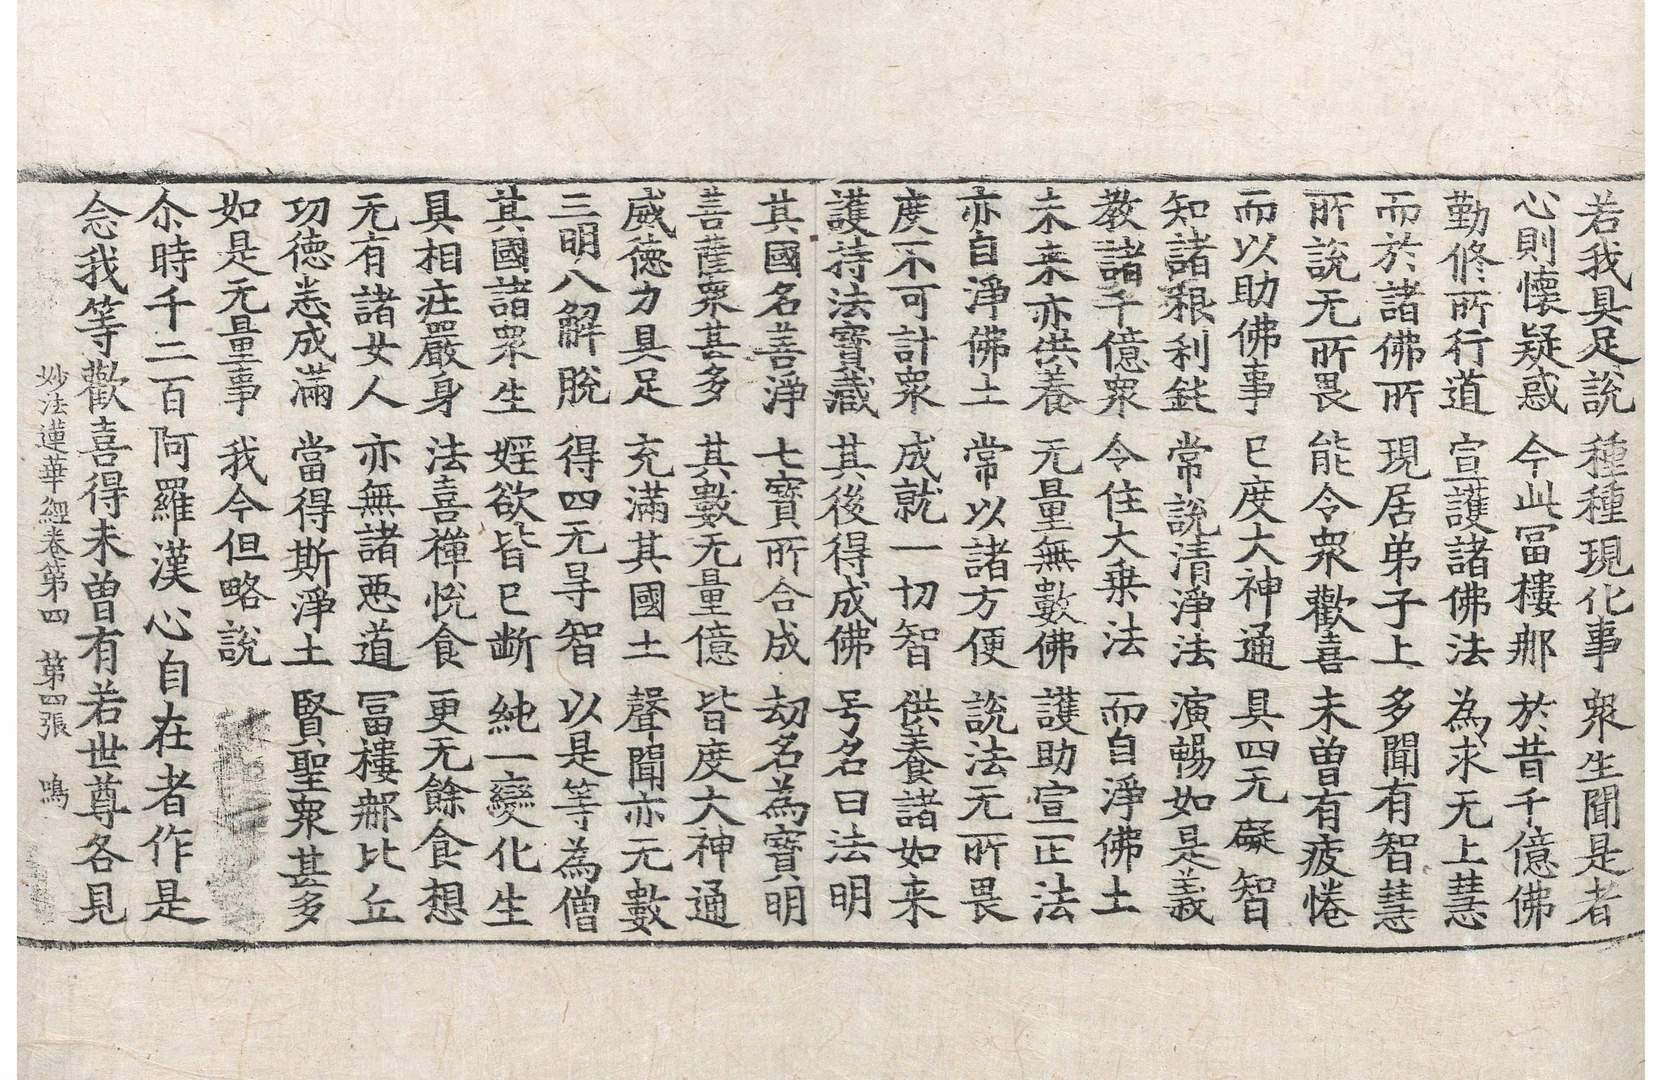 若我具足說　種種現化事　衆生聞是者
心則懷疑惑　今此冨樓那　於昔千億佛
勤修所行道　宣護諸佛法　為求无上慧
而於諸佛所　現居弟子上　多聞有智慧
所說无所畏　能令衆歡喜　未曽有疲惓
而以助佛事　已度大神通　具四无礙智
知諸根利鈍　常說清淨法　演暢如是義
教諸千億衆　令住大乗法　而自淨佛土
未来亦供養　无量無數佛　護助宣正法
亦自淨佛土　常以諸方便　說法无所畏
度不可計衆　成就一切智　供養諸如来
護持法寶藏　其後得成佛　号名曰法明
其國名善淨　七寶所合成　劫名為寶明
菩薩衆甚多　其數无量億　皆度大神通
威徳力具足　充滿其國土　聲聞亦无數
三明八解脫　得四无㝵智　以是等為僧
其國諸衆生　婬欲皆已断　純一變化生
具相莊嚴身　法喜禪悅食　更无餘食想
无有諸女人　亦無諸悪道　冨樓那比丘
功德悉成滿　當得斯淨土　賢聖衆甚多
如是无量事　我今但略說
尒時千二百阿羅漢心自在者作是
念我等歡喜得未曽有若世尊各見
妙法蓮華經卷第四　第四張　鳴